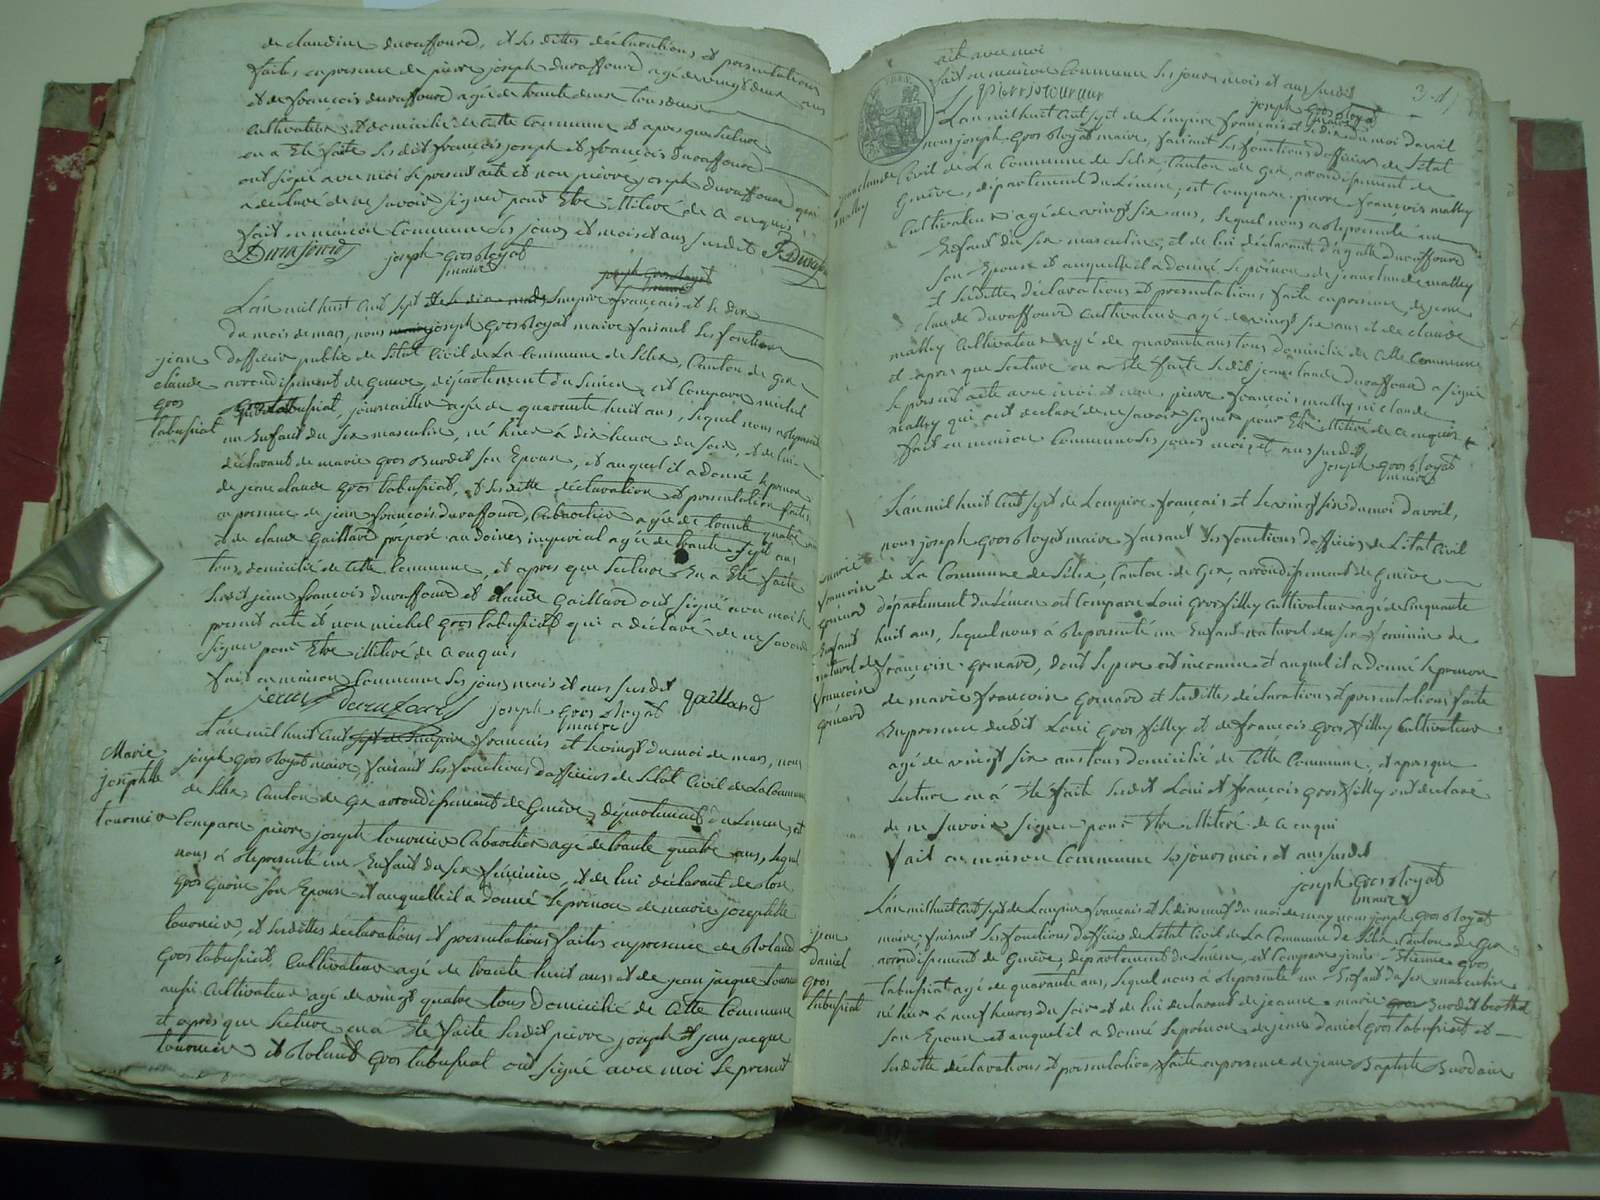 de claudine duraffourd, et les dittes déclarations et presentations
faites en presence de pierre joseph duraffourd agé de vingt deux ans
et de françois duraffourd agé de trante deux tous deux
Cultivateurs et domicilié de Cette Commune et apres que lecture
en a Eté faite Les dit françois joseph et françois duraffourd
ont signé avec moi le present acte et non pierre joseph duraffourd qui
a déclaré de ne savoir signer pour Etre illitéré de ce enquis
fait en maison Commune les jours et mois et ans susdit
joseph gros Royat
maire
joseph gros Royat
maire
L'an mil huit Cent sept de L'empire français et le dix
du mois de mars, nous joseph gros Royat maire faisant Les fonctions
jean claude gros tabusiat
d'officier public de L'état Civil de La Commune de Lélex, Canton de Gex
arrondissement de Geneve, département du Léman, est Comparu michel
gros tabusiat, journailler agé de quarante huit ans, Lequel nous a représenté
un Enfant du sex masculin, né hier à dix heure du soir, et de lui
déclarant de marie gros Burdet son Epouse, et auquel il a donné le prenom
de jean claude gros tabusiat, et Les ditte déclaration et presentation faites
en presence de jean françois duraffourd, Cabaretier agé de trante quatre ans
et de claude Gaillard préposé au doines imperial agé de trante sept ans
tous domicilié de Cette Commune, et apres que Lecture En a Eté faite
Lesdit jean françois duraffourd et claude Gaillard ont signé avec moi le
present acte et non michel gros tabusiat qui a déclaré de ne savoir
signer pour Etre illitéré de ce enquis
fait en maison Commune les jours mois et ans susdit
joseph gros Royat
gaillard
maire
L'an mil huit Cent sept de L'empire français et le vingt du moi de mars, nous
Marie josephtte tournier
joseph gros Royat maire, faisant Les fonctions d'officier de L'état Civil de La Commune
de Lélex Canton de Gex arrondissement de Genève, département du Léman, est
Comparu pierre joseph tournier Cabaretier agé de trante quatre ans, Lequel
nous à Représenté un Enfant du sex féminin, et de lui déclarant de
son Epouse et auquelle il a donné le prenom de marie josephtte
tournier, et Lesdittes déclarations et presentations faites en presence de Roland
gros tabusiat, Cultivateur agé de trante huit ans et de jean jacque tournier
aussi Cultivateur agé de vingt quatre tous domicilié de Cette Commune
et après que Lecture en a Eté faite Lesdit pierre joseph et jean jacque
tournier et Roland gros tabusiat ont signé avec moi Le present
acte avec moi
fait en maison Commune les jours mois et ans susdit
joseph gros Royat
maire
L'an mil huit Cent sept de L'empire français et le dix du moi d'avril
nous joseph gros Royat maire, faisant Les fonctions d'officier de L'état
jean claude mathey
Civil de La Commune de Lélex, Canton de Gex, arrondissement de
Genève, département du Léman, est Comparu pierre françois mathey
Cultivateur agé de vingt six ans, Lequel nous a Représenté un
Enfant du sex masculin, et de lui déclarant d' duraffourd
son Epouse et auquelle il a donné Le prénom de jean claude mathey
et Lesdittes déclarations et presentations faite en presence de jean
claude duraffourd cultivateur agé de vingt six ans et de claude
mathey Cultivateur agé de quarante ans tous domicilié de Cette Commune
et apres que Lecture en a été faite Le dit jean claude duraffourd a signé
Le present acte avec moi et non pierre françois mathey ni claude
mathey qui ont déclaré de ne savoir signer pour Etre illitéré de ce enquis
fait en maison Commune Les jours mois et ans susdit
joseph gros Royat
maire
L'an mil huit Cent sept de L'empire français et le vingt six du moi d'avril,
nous joseph gros Royat maire faisant Les fonctions d'officier de L'état Civil
marie françoise grénard Enfant naturel de françoise grénard
de La Commune de Lélex, Canton de Gex, arrondissement de Genève
département du Léman est Comparu Loui gros filley Cultivateur agé de Cinquante
huit ans, Lequel nous à Représenté un Enfant naturel du sex féminin de
françoise grénard, dont Le pere est inconnu et auquel il a donné Le prenom
de marie françoise grénard et Lesdittes déclarations et presentations faite
En presence dudit Loui gros filley et de françois gros filley Cultivateur
agé de vingt six ans tous domicilié de Cette Commune, et apres que
Lecture en à été faite Lesdit Loui et françois gros filley ont déclaré
de ne savoir signer pour Etre illitéré de ce enqui
fait en maison Commune Les jours mois et ans susdit
joseph gros Royat
maire
L'an mil huit Cent sept de L'empire français et le dix neuf du moi de may nous joseph gros Royat
jean daniel gros tabusiat
maire, faisant Les fonctions d'officier de L'état Civil de La Commune de Lélex Canton de Gex
arrondissement de Genève, département du Léman, est Comparu pierre Etienne gros
tabusiat agé de quarante ans, Lequel nous à Représenté un Enfant du sex masculin
né hier à neuf heures du soir et de lui déclarant de jeanne marie
son Epouse et auquel il a donné Le prénom de jean daniel gros tabusiat et
Lesditte déclarations et presentation faite en presence de jean Baptiste